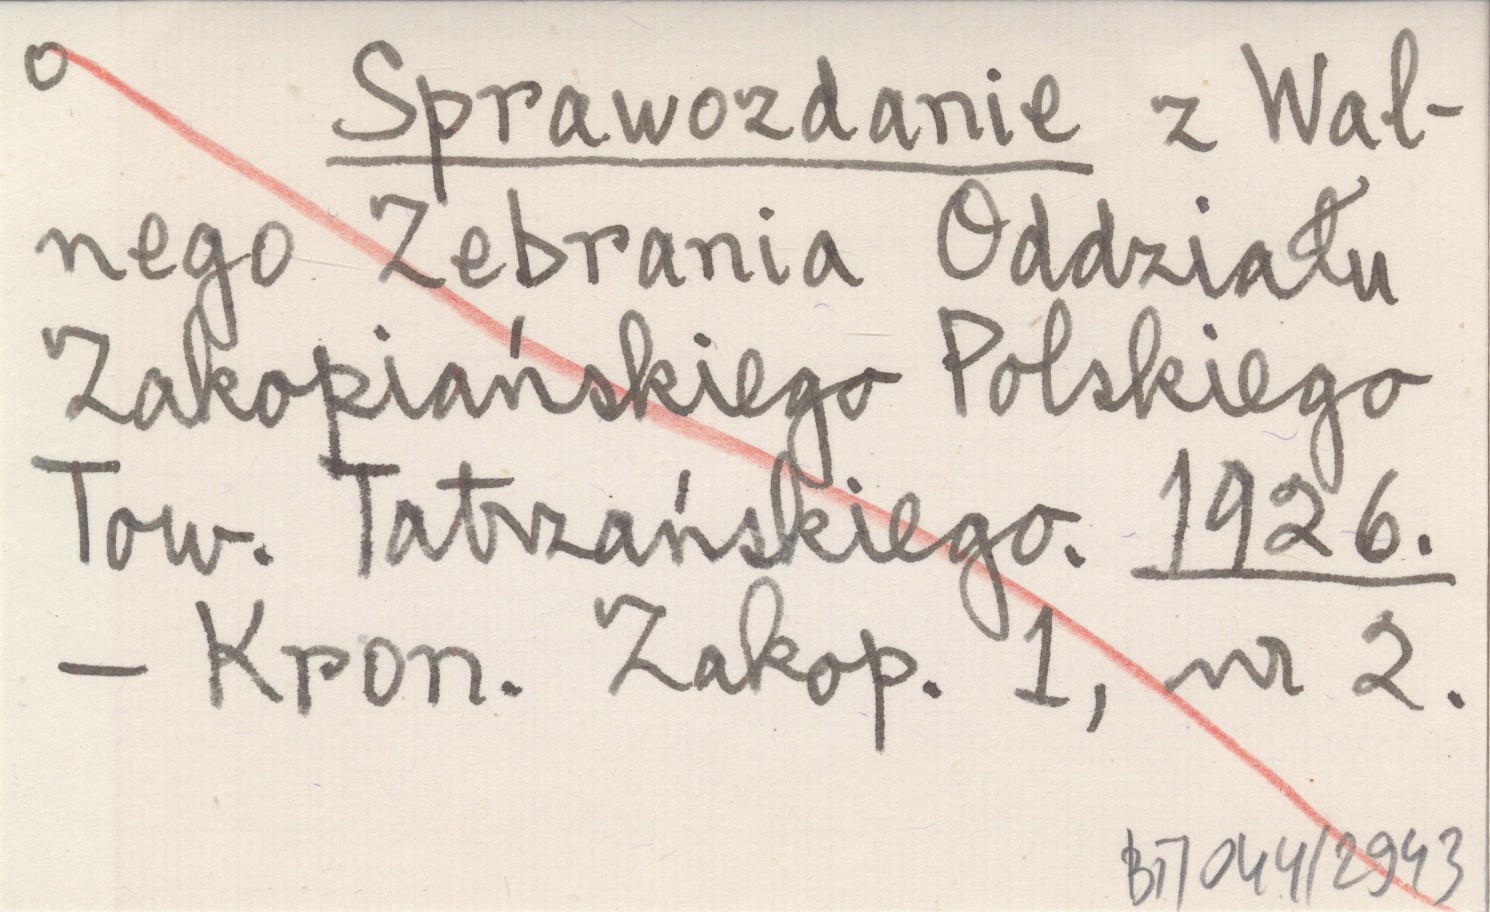 o Sprawozdanie z Wal-
nego Zebrania Oddziału
Zakopiańskiego Polskiego
Tow. Tatrzańskiego. 1926.
— Kron. Zakop. 1, nr 2.
BT/044/2943